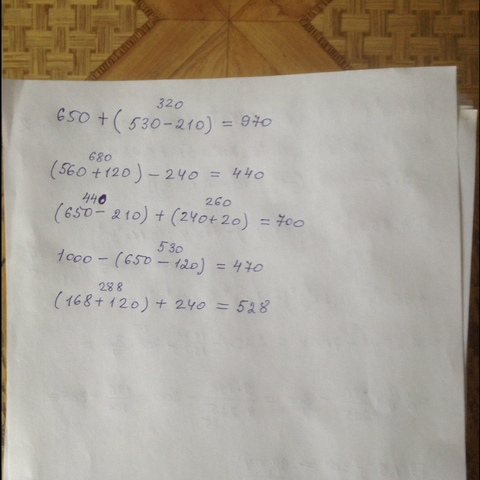 320
650 + (530 - 210) = 970
680
(560 + 120) - 240 = 440
440 260
(650 - 210) + (240 + 20) = 700
530
1000 - (650 - 120) = 470
288
(168 + 120) + 240 = 528